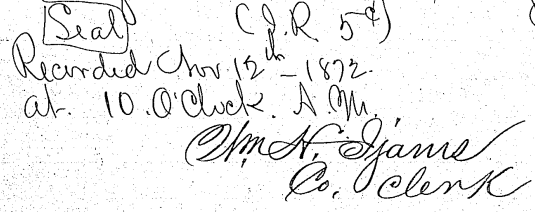 Seal (I.R 5¢)
Recorded Nov. 12th - 1872.
at. 10. O'Clock. A.M.
Wm H. Ijams
Co. Clerk